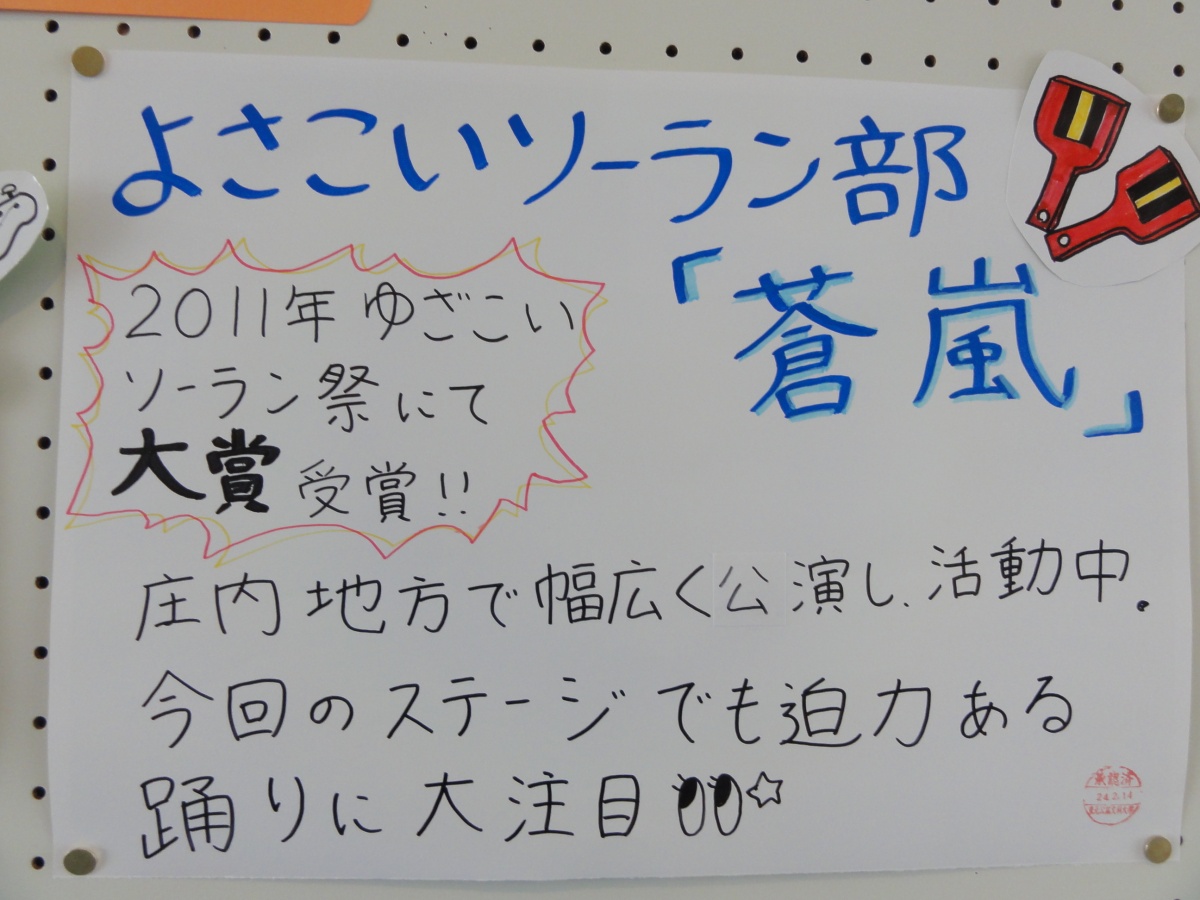 よさこいソーラン部
「蒼嵐」
2011年 ゆざこい
ソーラン祭にて
大賞 受賞!!
庄内地方で幅広く公演し、活動中。
今回のステージでも迫力ある
踊りに大注目
承認済
24.2.14